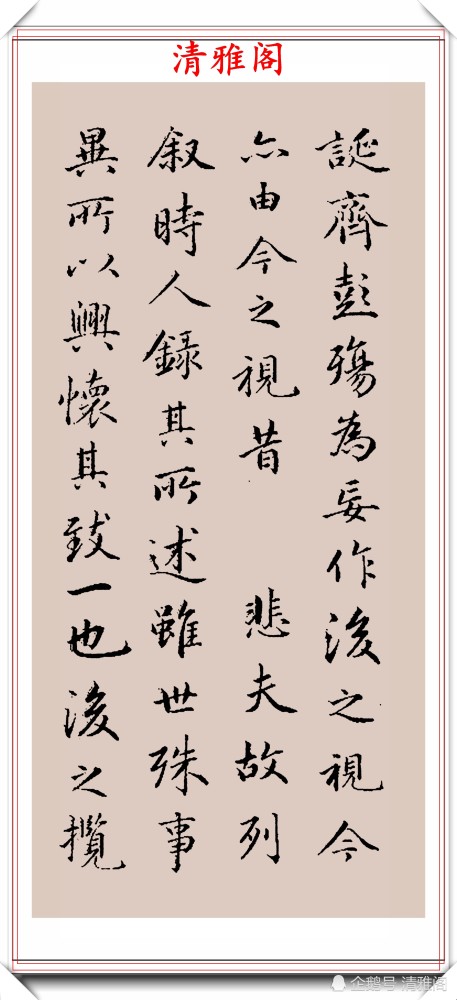 清雅阁
誕齊彭殤為妄作後之視今
亦由今之視昔 悲夫故列
叙時人錄其所述雖世殊事
異所以興懷其致一也後之攬
企鹅号 清雅阁